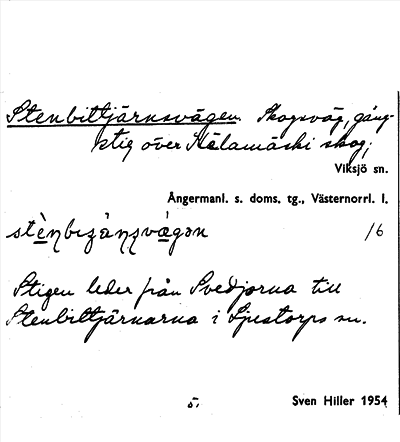 Stenbittjärnsvägen. Skogsväg, gång-
stig över Hälamäski skog;
Viksjö sn.
Ångermanl. s. doms. tg., Västernorrl. l.
16
Stigen leder från Svedjorna till
Stenbittjärnarna i Ljustorps sn.
5.
Sven Hiller 1954